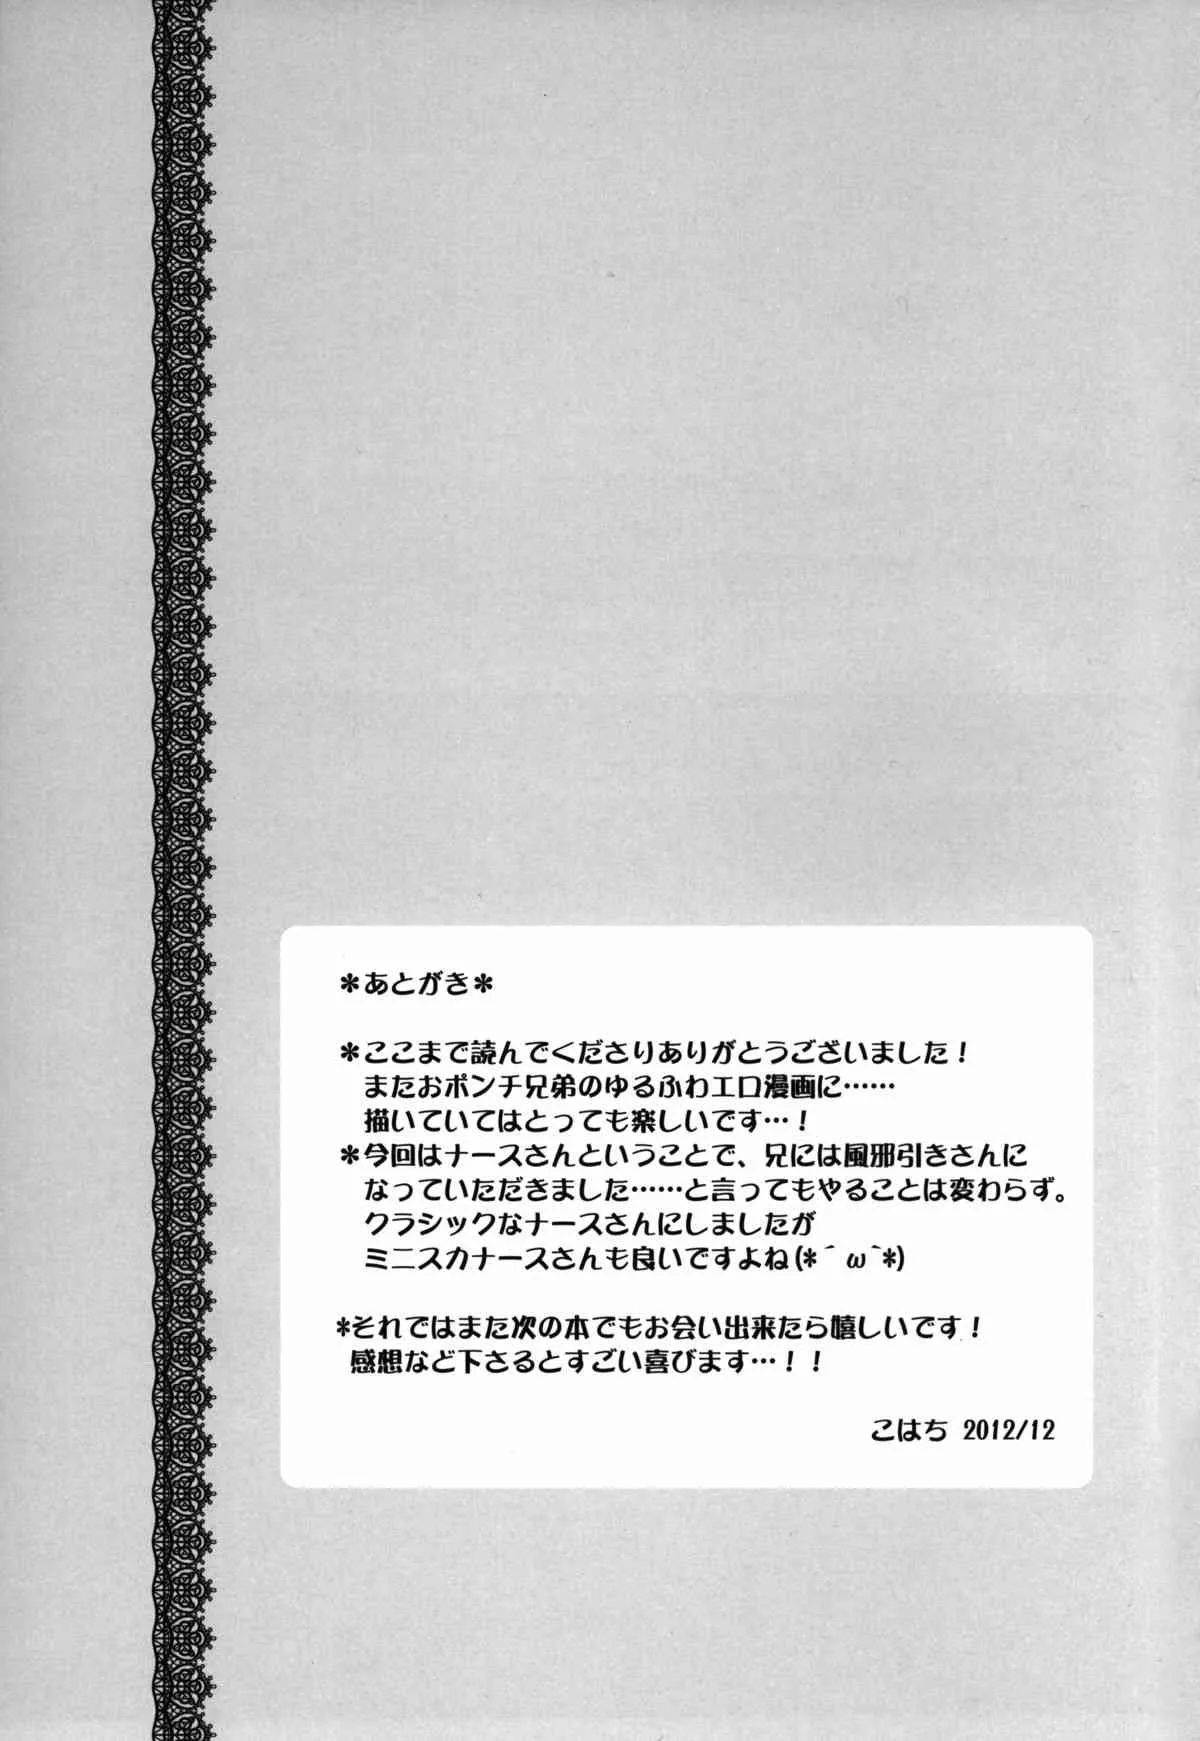 ＊あとがき＊
＊ここまで読んでくださりありがとうございました！
またおポンチ兄弟のゆるふわエロ漫画に……
描いていてはとっても楽しいです…！
＊今回はナースさんということで、兄には風邪引きさんに
なっていただきました……と言ってもやることは変わらず。
クラシックなナースさんにしましたが
ミニスカナースさんも良いですよね(*´ω`*)
*それではまた次の本でもお会い出来たら嬉しいです！
感想など下さるとすごい喜びます…！！
こはち 2012/12